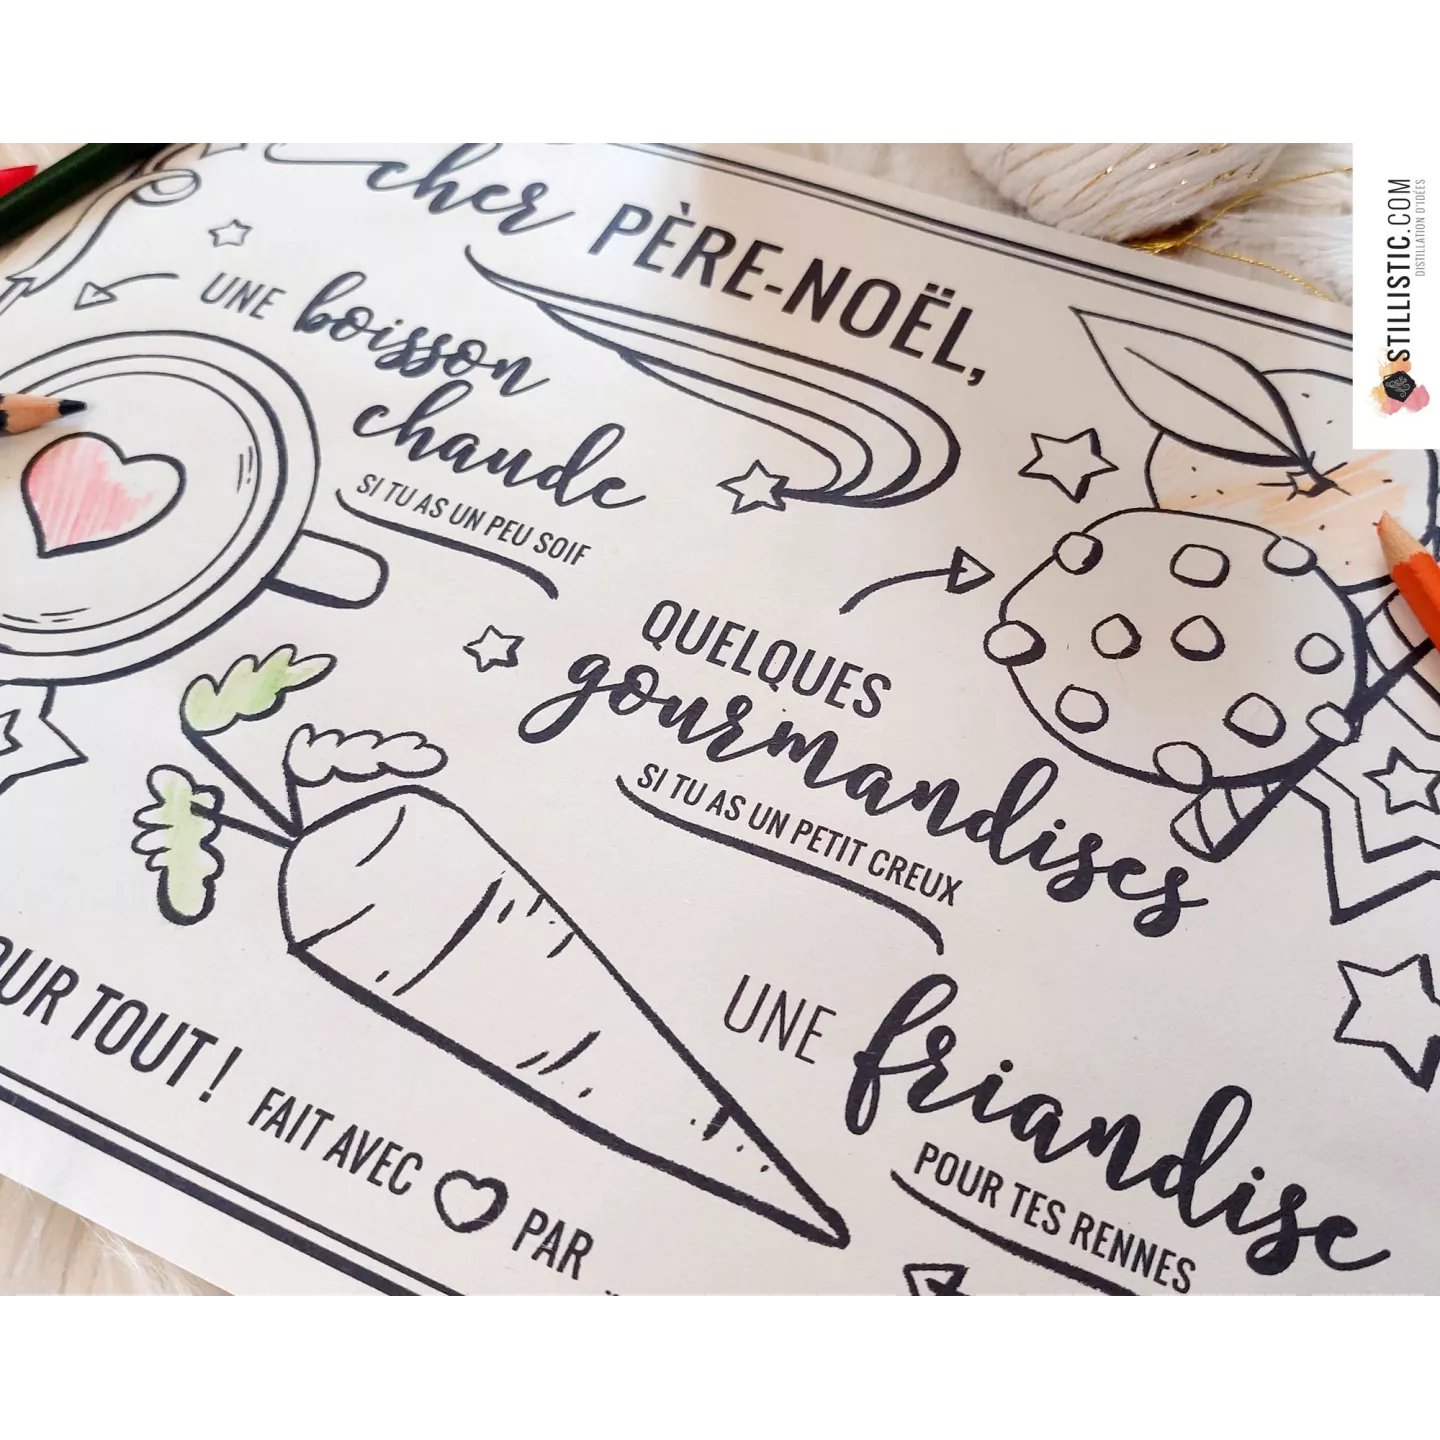 cher PÈRE-NOËL,
UNE boisson
chaude
SI TU AS UN PEU SOIF
QUELQUES
gourmandises
SI TU AS UN PETIT CREUX
UNE friandise
POUR TES RENNES
OUR TOUT !
FAIT AVEC PAR
STILLISTIC.COM
DISTILLATION D'IDÉES